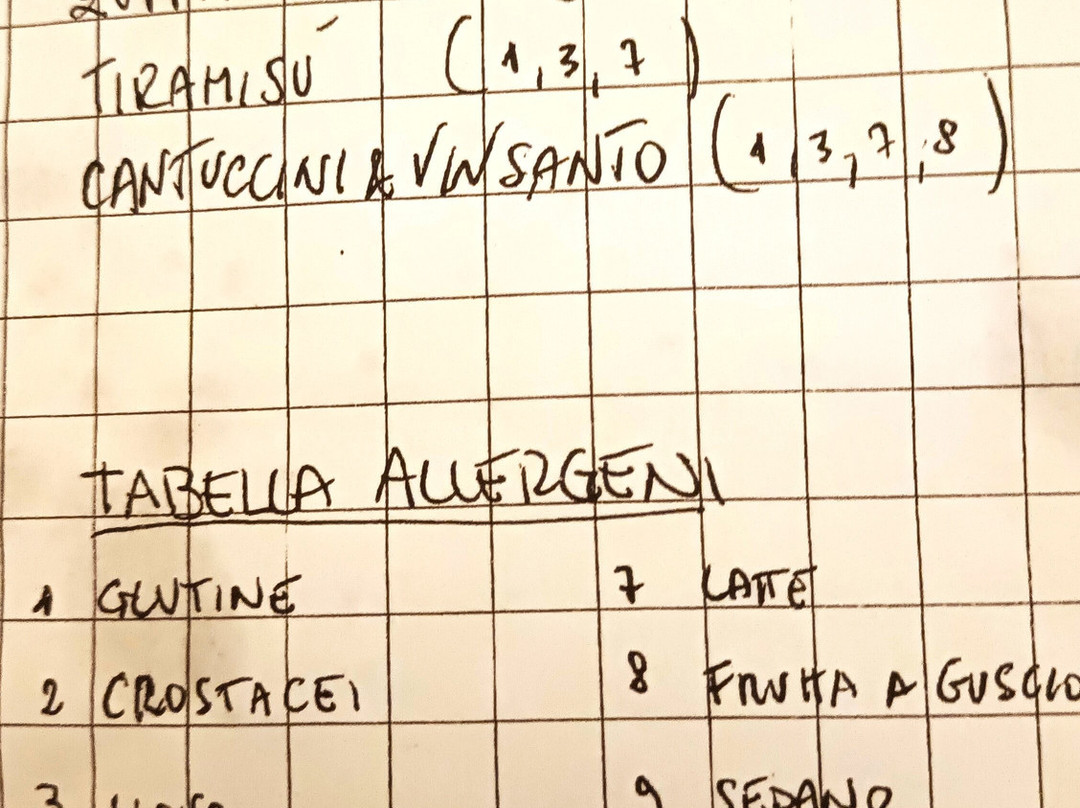 TIRAMISÚ (1, 3, 7)
CANTUCCINI & VIN SANTO (1, 3, 7, 8)
TABELLA ALLERGENI
1 GLUTINE 7 LATTE
2 CROSTACEI 8 FRUTTA A GUSCIO
3 9 SEDANO